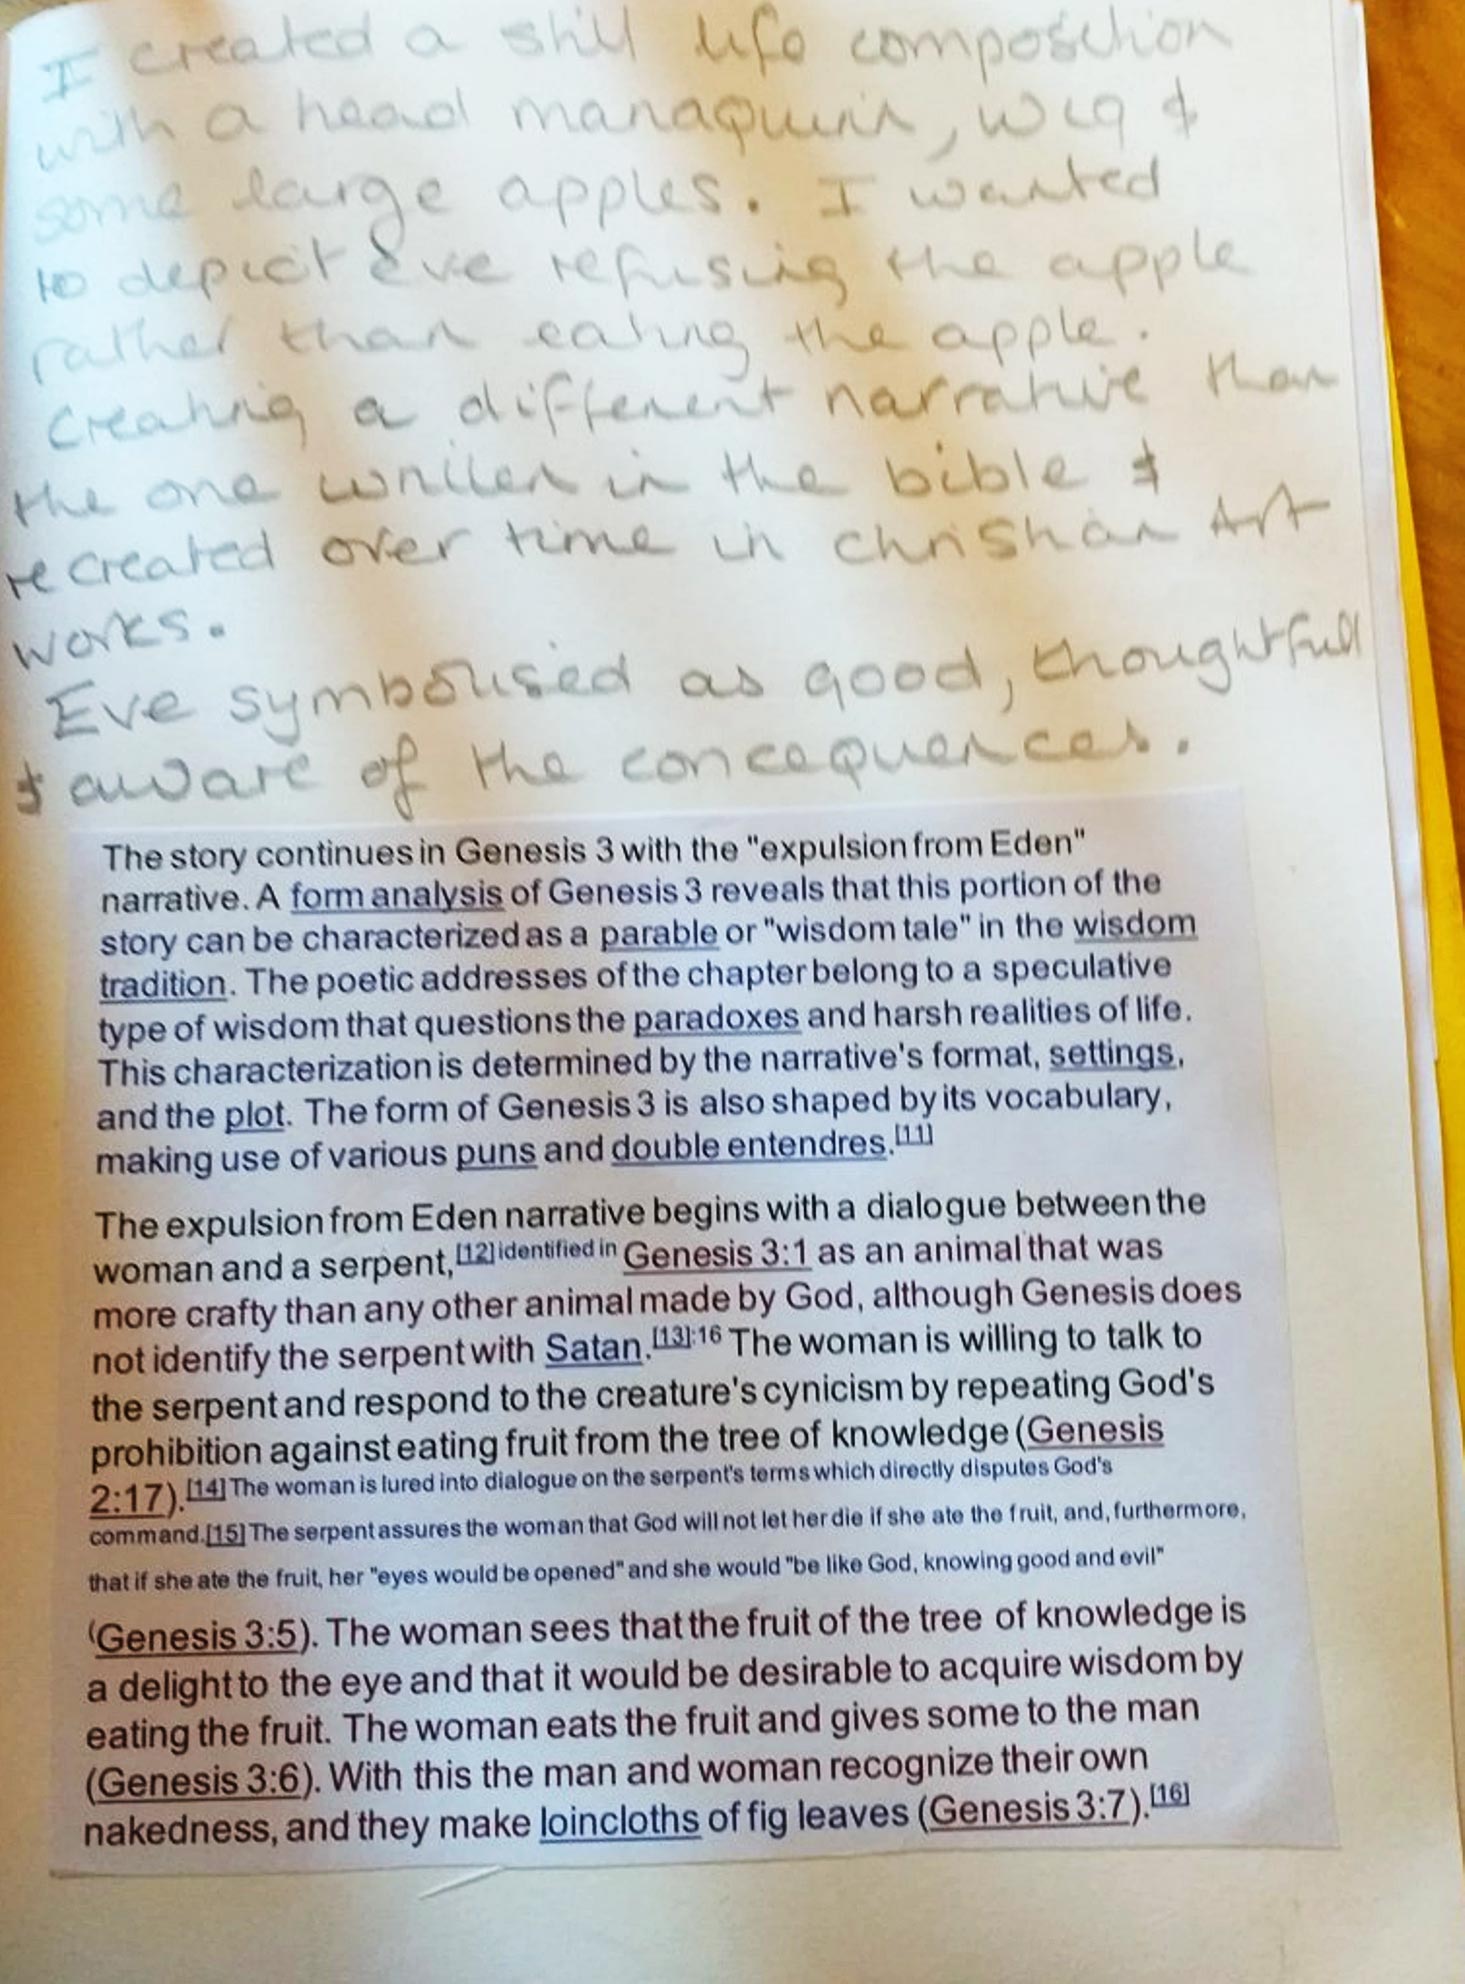 I created a still life composition
with a head manaquin, wig &
some large apples. I wanted
to depict Eve refusing the apple
rather than eating the apple.
Creating a different narrative than
the one written in the bible &
recreated over time in christian Art
works.
Eve symbolised as good, thoughtfull
& aware of the concequences.
The story continues in Genesis 3 with the "expulsion from Eden"
narrative. A form analysis of Genesis 3 reveals that this portion of the
story can be characterized as a parable or "wisdom tale" in the wisdom
tradition. The poetic addresses of the chapter belong to a speculative
type of wisdom that questions the paradoxes and harsh realities of life.
This characterization is determined by the narrative's format, settings,
and the plot. The form of Genesis 3 is also shaped by its vocabulary,
making use of various puns and double entendres.[11]
The expulsion from Eden narrative begins with a dialogue between the
woman and a serpent,[12] identified in Genesis 3:1 as an animal that was
more crafty than any other animal made by God, although Genesis does
not identify the serpent with Satan.[13]:16 The woman is willing to talk to
the serpent and respond to the creature's cynicism by repeating God's
prohibition against eating fruit from the tree of knowledge (Genesis
2:17).[14] The woman is lured into dialogue on the serpent's terms which directly disputes God's
command.[15] The serpent assures the woman that God will not let her die if she ate the fruit, and, furthermore,
that if she ate the fruit, her "eyes would be opened" and she would "be like God, knowing good and evil"
(Genesis 3:5). The woman sees that the fruit of the tree of knowledge is
a delight to the eye and that it would be desirable to acquire wisdom by
eating the fruit. The woman eats the fruit and gives some to the man
(Genesis 3:6). With this the man and woman recognize their own
nakedness, and they make loincloths of fig leaves (Genesis 3:7).[16]